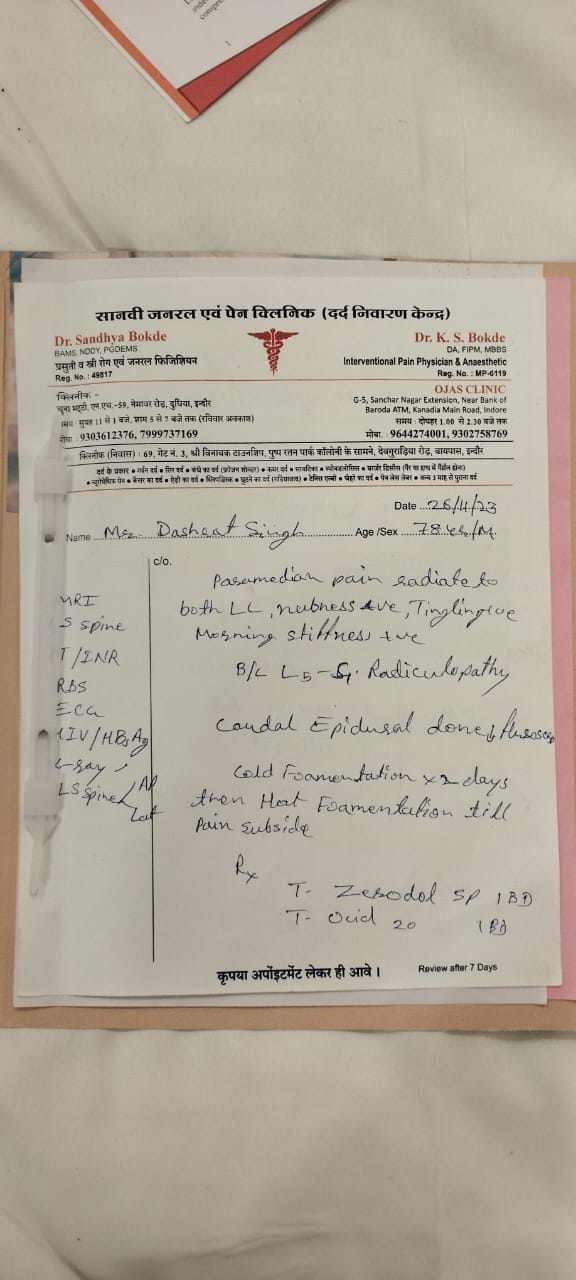 inde
compre
1
सानवी जनरल एवं पेन क्लिनिक (दर्द निवारण केन्द्र)
Dr. Sandhya Bokde
BAMS, NDDY, PGDEMS
प्रसुती व स्त्री रोग एवं जनरल फिजिशियन
Reg. No. : 49817
Dr. K. S. Bokde
DA, FIPM, MBBS
Interventional Pain Physician & Anaesthetic
Reg. No. : MP-6119
क्लिनीक -
चुना भट्टी, एन.एच.-59, नेमावर रोड़, दुधिया, इन्दौर
समय : सुबह 11 से 1 बजे, शाम 5 से 7 बजे तक (रविवार अवकाश)
मोबा. : 9303612376, 7999737169
OJAS CLINIC
G-5, Sanchar Nagar Extension, Near Bank of
Baroda ATM, Kanadia Main Road, Indore
समय : दोपहर 1.00 से 2.30 बजे तक
मोबा. : 9644274001, 9302758769
क्लिनीक (निवास) : 69, गेट नं. 3, श्री विनायक टाउनशिप, पुष्प रतन पार्क कॉलोनी के सामने, देवगुराड़िया रोड़, बायपास, इन्दौर
Date 26/4/23
Name Mr. Dashrat Singh Age /Sex 78 yrs/M.
c/o.
Paramedian pain radiate to
both LL, nubness +ve, Tingling +ve
Morning stiffness +ve
B/L L5-S1. Radiculopathy
Caudal Epidural done
Cold Foamentation x 2 days
then Hot Foamentation till
Pain subside
MRI
S spine
T/INR
RBS
ECG
HIV/HBsAg
X-ray
LS spine AP
Lat
Rx
T- Zerodol SP 1 BD
T- Ocid 20 1 BD
कृपया अपॉइटमेंट लेकर ही आवे ।
Review after 7 Days